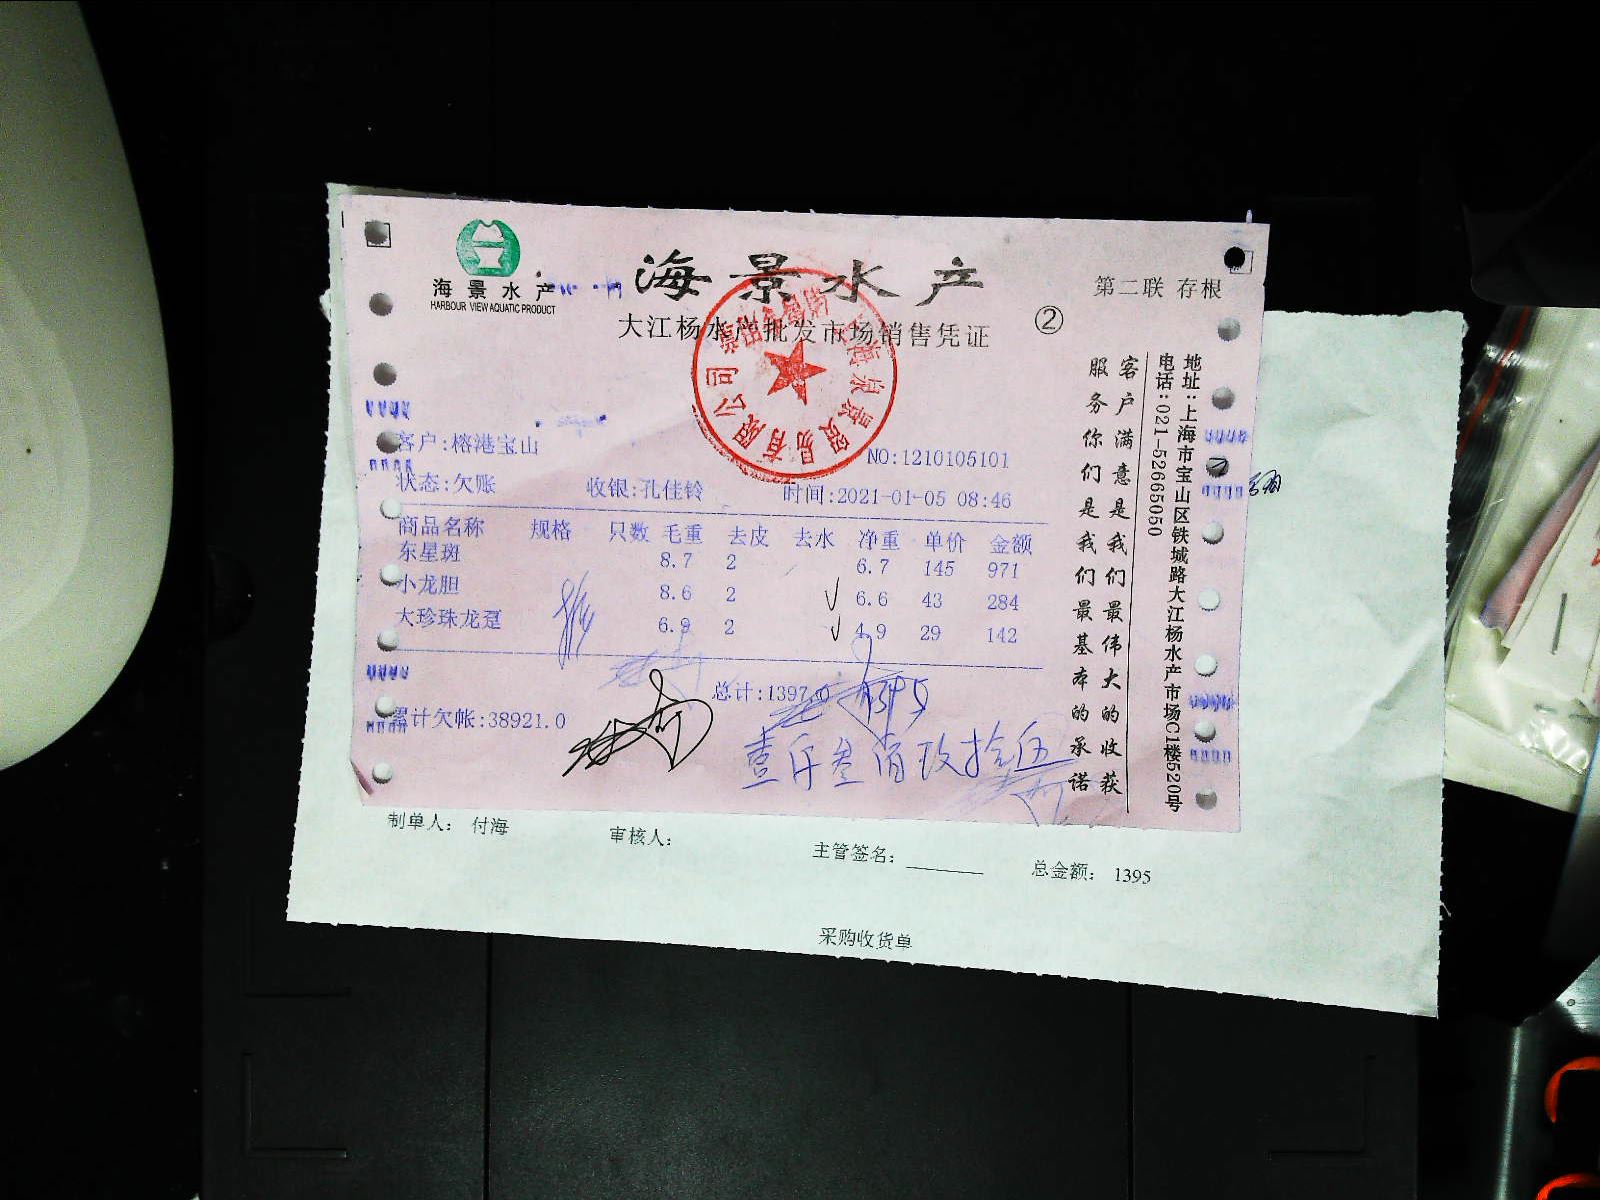 海景水产
HARBOUR VIEW AQUATIC PRODUCT
海景水产
大江杨水产批发市场销售凭证
②
第二联 存根
客户:榕港宝山
NO:1210105101
状态:欠账 收银:孔佳铃 时间:2021-01-05 08:46
商品名称 规格 只数 毛重 去皮 去水 净重 单价 金额
东星斑 8.7 2 6.7 145 971
小龙胆 8.6 2 6.6 43 284
大珍珠龙趸 6.9 2 4.9 29 142
总计:1397.0
1395
累计欠帐:38921.0
壹仟叁佰玖拾伍
客户满意是我们最伟大的收获
服务你们是我们最基本的承诺
地址:上海市宝山区铁城路大江杨水产市场C1楼520号
电话:021-52665050
制单人: 付海 审核人: 主管签名: 总金额: 1395
采购收货单